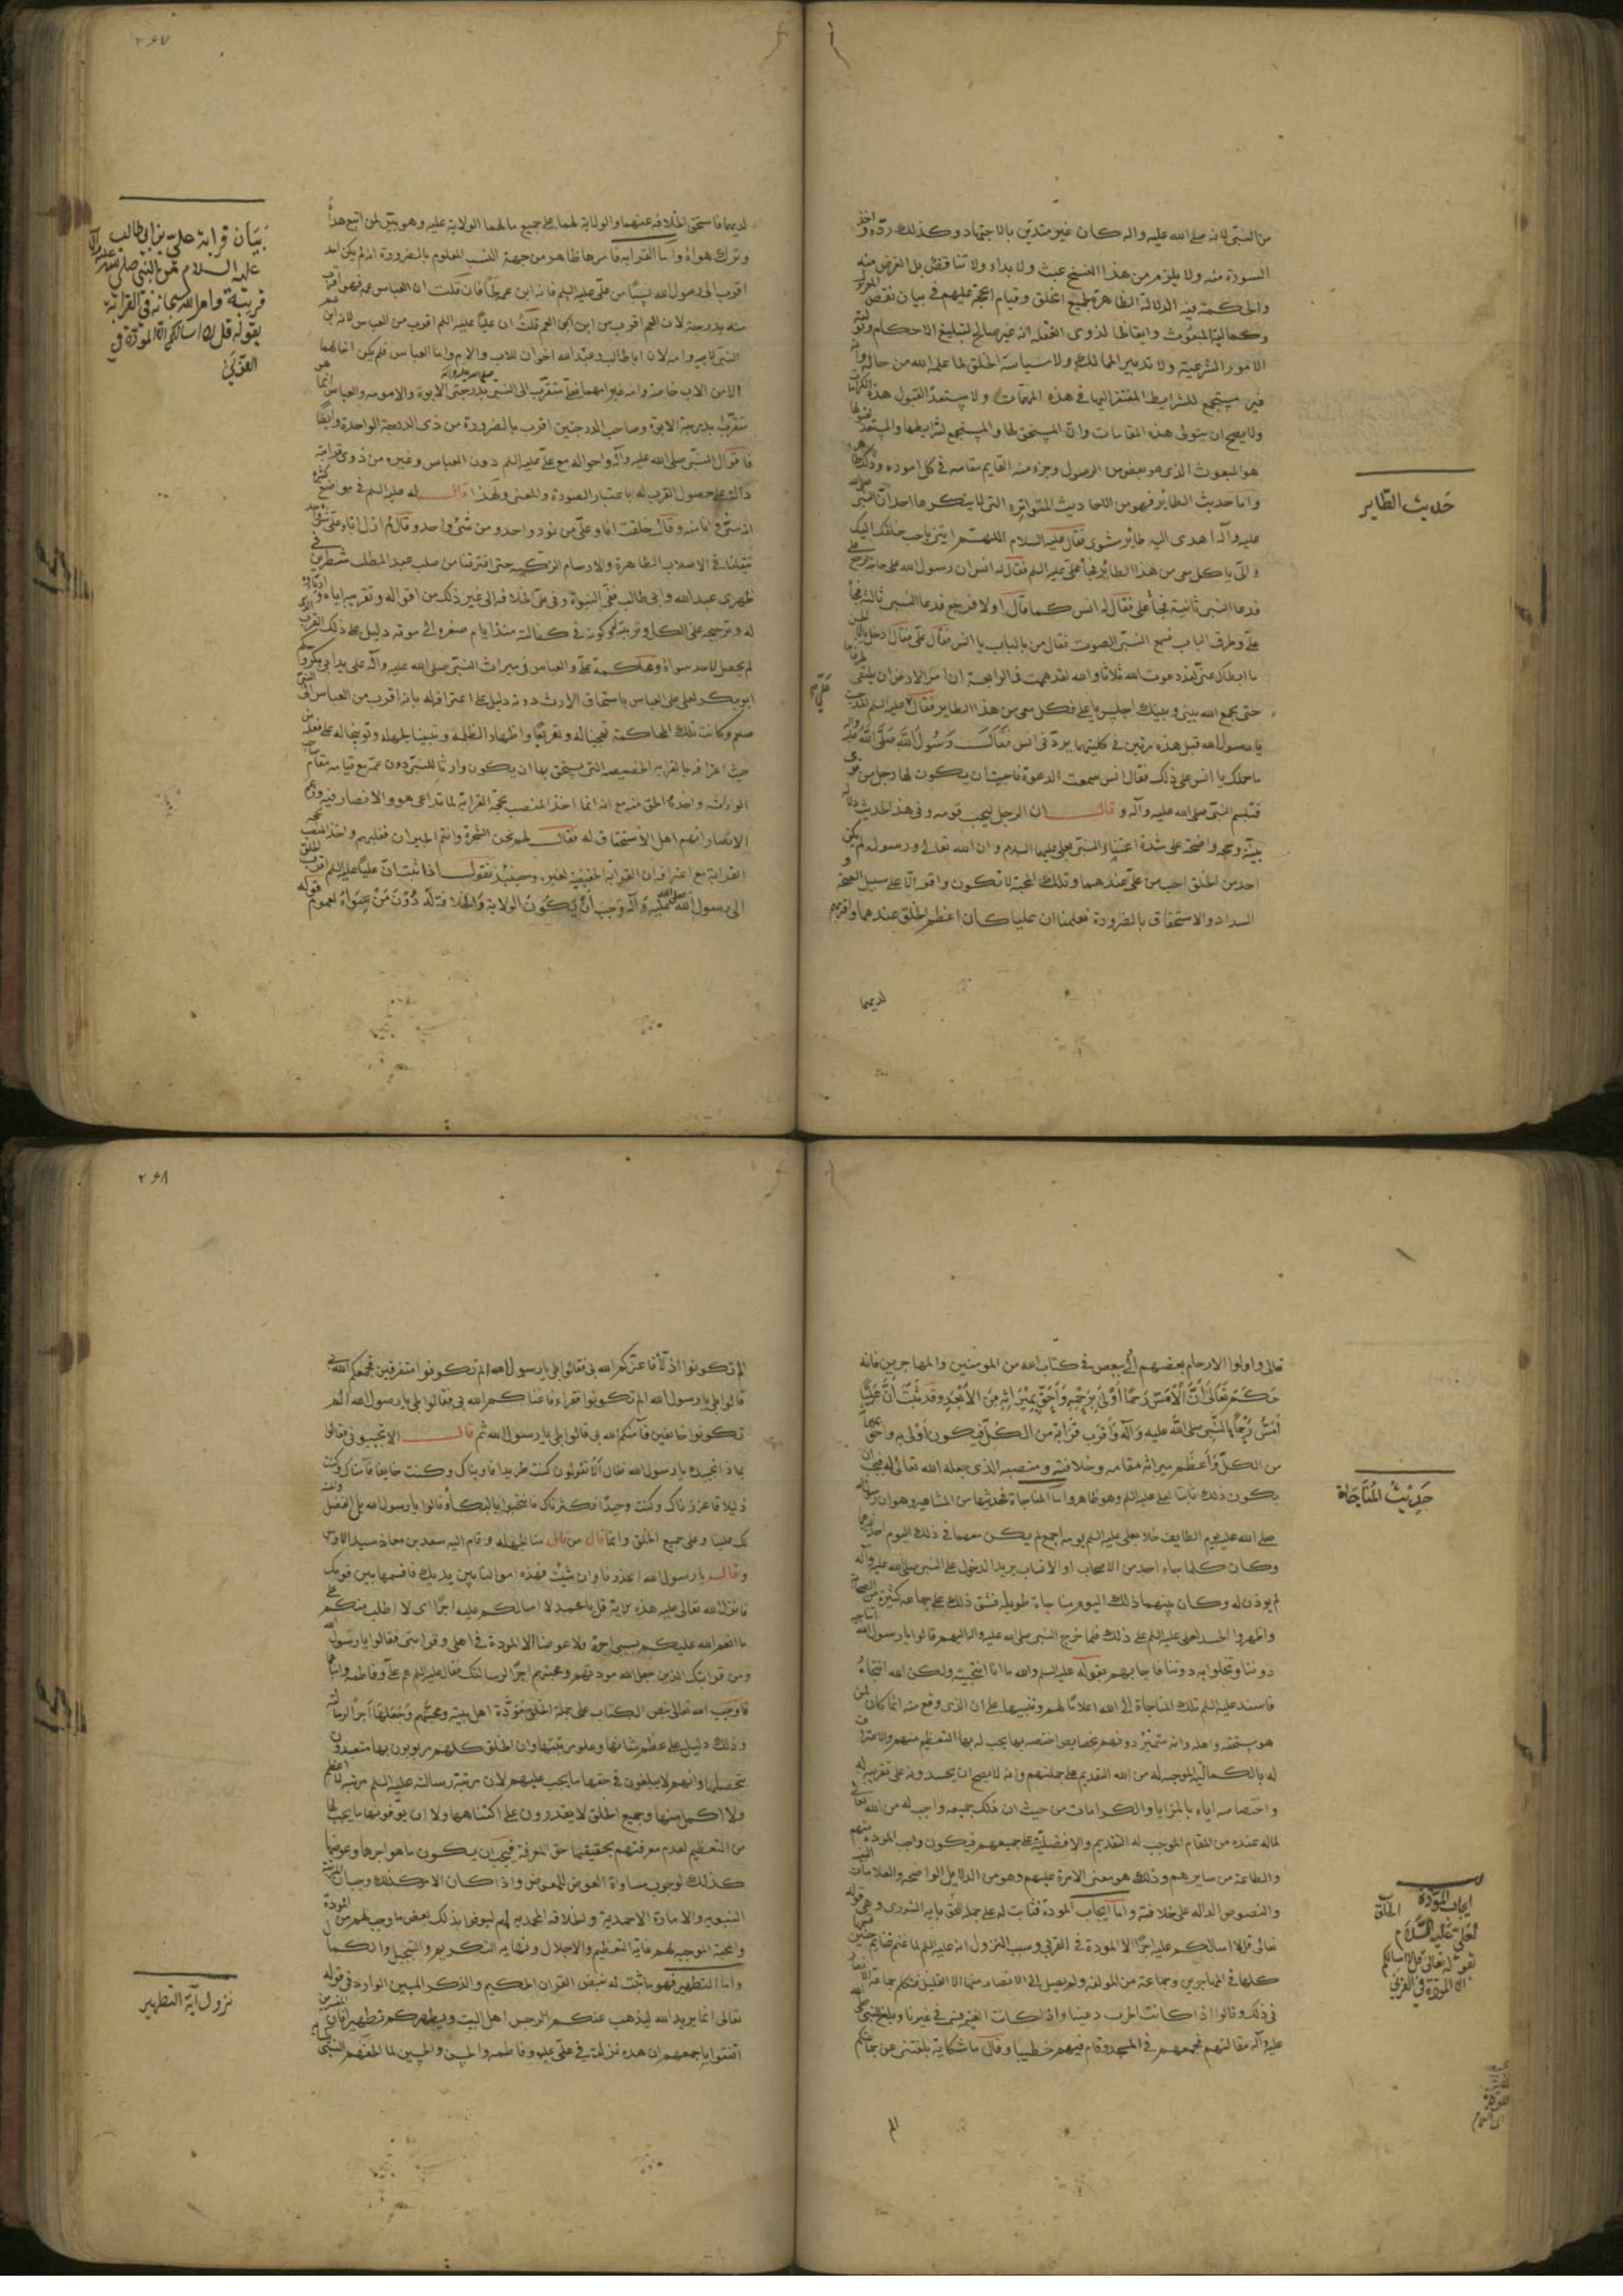 من النبى لانه صلى الله عليه واله كان غير متدين بالاجتهاد وكذلك ردّه واخذ
السورة منه ولا يلزم من هذا النسخ عبث ولا بداء ولا تناقض بل الغرض منه
والحكمة فيه الدلالة الظاهرة لجميع الخلق وقيام الحجة عليهم فى بيان نقص
وكمالية المبعوث وايقاظا لذوى الغفلة انه غير صالح لتبليغ الاحكام
الامور الشرعية ولا تدبير الممالك ولا سياسة الخلق لما علم الله من حاله وانه
غير مستجمع للشرايط المفتقر اليها فى هذه المهمّات ولا مستعد لقبول هذه
ولا يصح ان يتولى هذه المقامات وانّ المستحق لها والمستجمع لشرايطها والمستعد
هو المبعوث الذى هو بعض من الرسول وجزء منه القايم مقامه فى كل اموره
واما حديث الطاير فهو من الاحاديث المتواترة التى لا ينكرها احد ان النبى
عليه وآله اهدى اليه طاير مشوى فقال عليه السلام اللهم ايتنى باحب خلقك اليك
والىّ ياكل معى من هذا الطاير فجاء على عليه السلم فقال له انس ان رسول الله على حاجة فرجع
فدعا النبى ثانية فجاء على فقال له انس كما قال اولا فرجع فدعا النبى ثالثة فجاء
على وطرق الباب فسمع النبى الصوت فقال من بالباب يا انس فقال على فقال ادخل
ما ابطاك عنى لقد دعوت الله ثلاثا والله لقد هممت فى الرابعة ان امر الارض ان
حتى يجمع الله بينى وبينك اجلس يا على فكل معى من هذا الطاير فقال عليه السلم لقد جئت
يا رسول الله قبل هذه مرتين فى كلتيهما يردّنى انس فقال رسول الله صلى الله عليه
ما حملك يا انس على ذلك فقال انس سمعت الدعوة فاحببت ان يكون لها رجل من
فتبسم النبى صلى الله عليه وآله وقال ان الرجل ليحب قومه وفى هذا الحديث دلالة
بينة وحجة واضحة على شدة اعتناء النبى بعلى عليهما السلام وان الله تعالى ورسوله لم يكن
احد من الخلق احب من على عندهما وتلك المحبة لا تكون واقعة الا على سبيل الصحة و
السداد والاستحقاق بالضرورة فعلمنا ان عليا كان اعظم الخلق عندهما واقربهم
لديهما
حديث الطاير
٢٦٧
لديهما فاستحق الخلافة عنهما والولاية لهما على جميع ما لهما الولاية عليه وهو بيّن لمن اتبع هداه
وترك هواه واما القرابة فامرها ظاهر من جهة النسب المعلوم بالضرورة انه لم يكن احد
اقرب الى رسول الله نسبا من على عليه السلم فانه ابن عمه فان قلت ان العباس عمه فهو اقرب
منه بدرجة لان العم اقرب من ابن العم قلت ان عليا عليه السلم اقرب من العباس لانه ابن عم
النبى لابيه وامه لان ابا طالب وعبد الله اخوان للاب والام واما العباس فلم يكن اخا لهما
الا من الاب خاصة وامه غير امهما فعلى متقرب الى النبى بدرجتى الابوة والامومة والعباس انما هو
متقرب بدرجة الابوة وصاحب الدرجتين اقرب بالضرورة من ذى الدرجة الواحدة وايضا
فاقوال النبى صلى الله عليه وآله واحواله مع على عليه السلم دون العباس وغيره من ذوى قرابته
دالة على حصول القرب له باعتبار الصورة والمعنى ولهذا قال له عليه السلم فى مواضع كثيرة
انه منى وانا منه وقال خلقت انا وعلى من نور واحد ومن شئ واحد وقال لم ازل انا وعلى
ننتقل فى الاصلاب الطاهرة والارحام الزكيه حتى افترقنا من صلب عبد المطلب شطرين فى
ظهرى عبد الله وابى طالب ففىّ النبوة وفى على الخلافة الى غير ذلك من اقواله وتقريبه اياه
له وترجيحه على الكل وتربيته وكونه فى كفالته منذ ايام صغره الى موته دليل على ذلك القرب الذى
لم يحصل لاحد سواه ومحاكمة على والعباس فى ميراث النبى صلى الله عليه وآله على يد ابى بكر
ابو بكر لعلى على العباس باستحقاق الارث دونه دليل على اعترافه له بانه اقرب من العباس الى النبى
صلعم وكانت تلك المحاكمة تعجيبا له وتقريعا واظهارا لظلمه وتنبيها لجهله وتوبيخا له على فعله
حيث اعترافه بالقرابه الخصيصه التى يستحق بها ان يكون وارثا للنبى دون عمه مع قيامه مقام
الوارث واخذه الحق منه مع انه انما اخذ المنصب بحجة القرابة لما تداعى هو والانصار فيه وزعم
الانصار انهم اهل الاستحقاق له فقال لهم نحن الشجرة وانتم الجيران فغلبهم واخذ المنصب بحجة
القرابة مع اعترافه ان القرابة الحقيقية لغيره وحينئذ نقول اذا ثبت ان عليا عليه السلم اقرب الخلق
الى رسول الله صلى الله عليه وآله وجب ان يكون الولاية والخلافة له دون من سواه لعموم قوله
بيان قرابة على بن ابى طالب
عليه السلام من النبى صلى الله عليه وآله
قريبة وامر الله سبحانه فى القرابة
بقوله قل لا اسالكم الا المودة فى
القربى
تعالى واولوا الارحام بعضهم اولى ببعض فى كتاب الله من المومنين والمهاجرين فانه
حكم تعالى ان الامسّ رحما اولى برحمه واحق بميراثه من الابعد وقد ثبت ان عليا
امسّ رحما بالنبى صلى الله عليه وآله واقرب قرابة من الكل فيكون اولى به واحق
من الكل واعظم ميراثه مقامه وخلافته ومنصبه الذى جعله الله تعالى له فيجب ان
يكون ذلك ثابتا لعلى عليه السلم وهو ظاهر واما المناجاة فحديثها من المشاهير وهو ان رسول الله
صلى الله عليه يوم الطايف خلا بعلى عليه السلم يومه اجمع لم يكن معهما فى ذلك اليوم احد غيرهما
وكان كلما جاء احد من الاصحاب او الانساب يريد الدخول على النبى صلى الله عليه وآله
لم يوذن له وكان بينهما ذلك اليوم مناجاة طويله فشق ذلك على جماعه كثيرة من الصحابة
واظهروا الحسد لعلى عليه السلم على ذلك فلما خرج النبى صلى الله عليه واله اليهم قالوا يا رسول الله اتناجيه
دوننا وتخلو به دوننا فاجابهم بقوله عليه السلم والله ما انا انتجيته ولكن الله انتجاه
فاسند عليه السلم تلك المناجاة الى الله اعلانا لهم وتنبيها على ان الذى وقع منه انما كان لمن
هو مستحقه واهله وانه متميز دونهم بخصايص اختصه بها يجب له بها التعظيم منهم والاعتراف
له بالكمالية الموجبه له من الله التقديم على جملتهم وانه لا يصح ان يحسدونه على تقريبه له
واختصاصه اياه بالمزايا والكرامات من حيث ان ذلك جميعه واجب له من الله تعالى
لماله عنده من المقام الموجب له التقديم والافضلية على جميعهم فيكون واجب المودة منهم
والطاعة من سايرهم وذلك هو معنى الامرة عليهم وهو من الدلايل الواضحه والعلامات البينه
والنصوص الداله على خلافته واما ايجاب المودة فثابت له على جملة الخلق باية الشورى وهى قوله
تعالى قل لا اسالكم عليه اجرا الا المودة فى القربى وسبب النزول انه عليه السلم لما غنم غنايم حنين قسمها
كلها فى المهاجرين وجماعة من المولفة ولم يصل الى الانصار منها الا القليل فتكلم جماعة الانصار
فى ذلك وقالوا اذا كانت الحرب دعينا واذا كانت الغنيمة قسم فى غيرنا وبلغ النبى صلى الله
عليه وآله مقالتهم فجمعهم فى المسجد وقام فيهم خطيبا وقال ما شكاية بلغتنى عن جماعتكم
الم
حديث المناجاة
ايجاب المودة
الخلق
لعلى عليه السلام
لقوله تعالى قل لا اسالكم
الا المودة فى القربى
٢٦٨
الم تكونوا اذلاء فاعزكم الله بى فقالوا بلى يا رسول الله الم تكونوا متفرقين فجمعكم الله بى
قالوا بلى يا رسول الله الم تكونوا فقراء فاغناكم الله بى فقالوا بلى يا رسول الله الم
تكونوا خايفين فآمنكم الله بى قالوا بلى يا رسول الله ثم قال الا تجيبونى فقالوا
بماذا نجيبك يا رسول الله فقال الا تقولون كنت طريدا فاويناك وكنت خايفا فآمناك وكنت
ذليلا فاعززناك وكنت وحيدا فكثرناك فانتحبوا بالبكاء وقالوا يا رسول الله بل الفضل والمنة
لك علينا وعلى جميع الخلق وانما قال من قال منا لجهله وقام اليه سعد بن معاذ سيد الاوس
وقال يا رسول الله اعذرنا وان شئت فهذه اموالنا بين يديك فاقسمها بين قومك
فانزل الله تعالى عليه هذه الاية قل يا محمد لا اسالكم عليه اجرا اى لا اطلب منكم على
ما انعم الله عليكم بسببى اجرة ولا عوضا الا المودة فى اهلى وقرابتى فقالوا يا رسول الله
ومن قرابتك الذين جعل الله مودتهم ومحبتهم اجرا لرسالتك فقال عليه السلم هم على وفاطمه وابناهما
فاوجب الله تعالى بنص الكتاب على جملة الخلق مودة اهل بيته ومحبتهم وجعلها اجرا لرسالته
وذلك دليل على عظم شانها وعلو مرتبتها وان الخلق كلهم مربوبون بها متعبدون
بتحصيلها وانهم لا يبلغون فى حقها ما يجب عليهم لان مرتبة رسالته عليه السلم مرتبة لا اعظم
ولا اكمل منها وجميع الخلق لا يقدرون على اكتناهها ولا ان يوفونها ما يجب لها
من التعظيم لعدم معرفتهم بحقيقتها حق المعرفة فيجب ان يكون ما هو اجرها وعوضها
كذلك لوجوب مساواة العوض للمعوض واذا كان الامر كذلك وجب ان
النبويه والامارة الاحمدية والخلافه المحمديه لهم ليوفوا بذلك بعض ما وجب لهم من المودة
والمحبة الموجبه لهم غاية التعظيم والاجلال ونهايه التكريم والتبجيل والكمال
واما التطهير فهو ما ثبت له بنص القران الحكيم والذكر المبين الوارد فى قوله
تعالى انما يريد الله ليذهب عنكم الرجس اهل البيت ويطهركم تطهيرا فان المفسرين
اتفقوا باجمعهم ان هذه نزلت فى على وفاطمه والحسن والحسين لما لفهم النبى
نزول آية التطهير